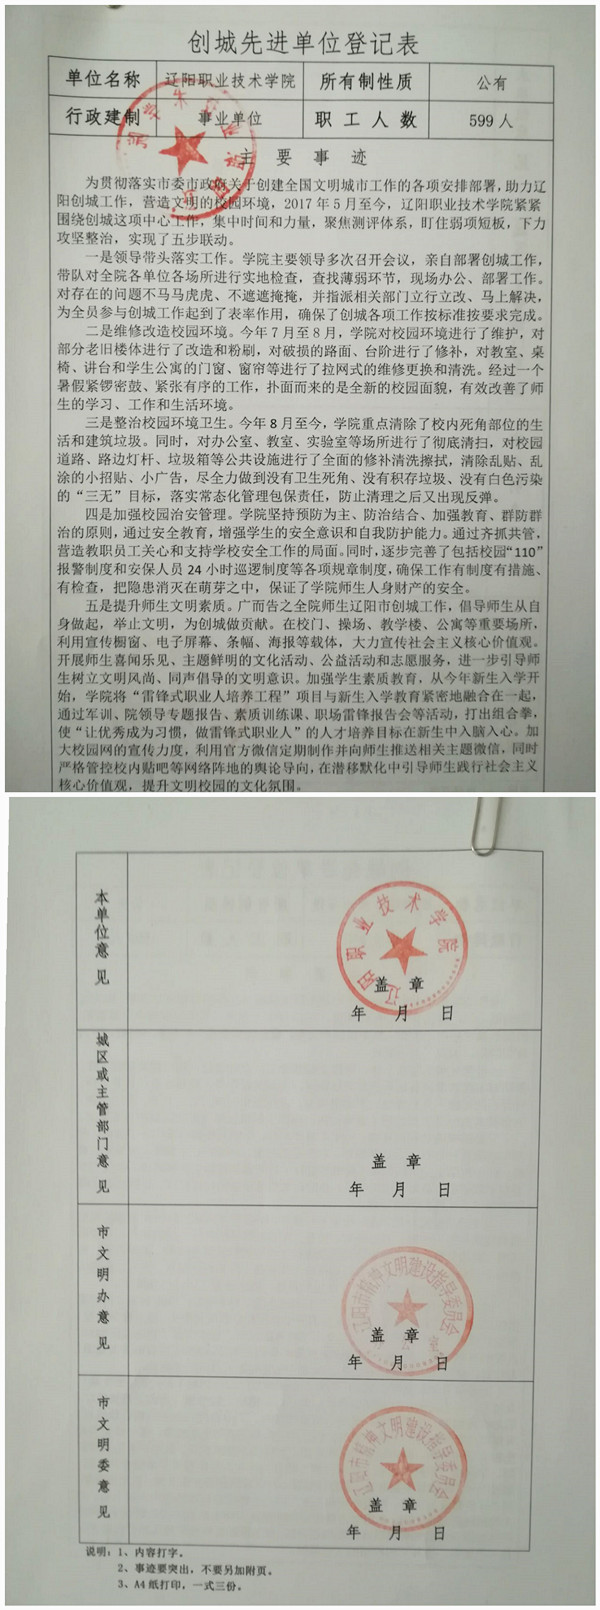 创城先进单位登记表
单位名称 辽阳职业技术学院 所有制性质 公有
行政建制 事业单位 职工人数 599人
主要事迹
为贯彻落实市委市政府关于创建全国文明城市工作的各项安排部署，助力辽
阳创城工作，营造文明的校园环境，2017年5月至今，辽阳职业技术学院紧紧
围绕创城这项中心工作，集中时间和力量，聚焦测评体系，盯住弱项短板，下力
攻坚整治，实现了五步联动。
一是领导带头落实工作。学院主要领导多次召开会议，亲自部署创城工作，
带队对全院各单位各场所进行实地检查，查找薄弱环节，现场办公、部署工作。
对存在的问题不马马虎虎、不遮遮掩掩，并指派相关部门立行立改、马上解决，
为全员参与创城工作起到了表率作用，确保了创城各项工作按标准按要求完成。
二是维修改造校园环境。今年7月至8月，学院对校园环境进行了维护，对
部分老旧楼体进行了改造和粉刷，对破损的路面、台阶进行了修补，对教室、桌
椅、讲台和学生公寓的门窗、窗帘等进行了拉网式的维修更换和清洗。经过一个
暑假紧锣密鼓、紧张有序的工作，扑面而来的是全新的校园面貌，有效改善了师
生的学习、工作和生活环境。
三是整治校园环境卫生。今年8月至今，学院重点清除了校内死角部位的生
活和建筑垃圾。同时，对办公室、教室、实验室等场所进行了彻底清扫，对校园
道路、路边灯杆、垃圾箱等公共设施进行了全面的修补清洗擦拭，清除乱贴、乱
涂的小招贴、小广告，尽全力做到没有卫生死角、没有积存垃圾、没有白色污染
的“三无”目标，落实常态化管理包保责任，防止清理之后又出现反弹。
四是加强校园治安管理。学院坚持预防为主、防治结合、加强教育、群防群
治的原则，通过安全教育，增强学生的安全意识和自我防护能力。通过齐抓共管，
营造教职员工关心和支持学校安全工作的局面。同时，逐步完善了包括校园“110”
报警制度和安保人员24小时巡逻制度等各项规章制度，确保工作有制度有措施、
有检查，把隐患消灭在萌芽之中，保证了学院师生人身财产的安全。
五是提升师生文明素质。广而告之全院师生辽阳市创城工作，倡导师生从自
身做起，举止文明，为创城做贡献。在校门、操场、教学楼、公寓等重要场所，
利用宣传橱窗、电子屏幕、条幅、海报等载体，大力宣传社会主义核心价值观。
开展师生喜闻乐见、主题鲜明的文化活动、公益活动和志愿服务，进一步引导师
生树立文明风尚、同声倡导的文明意识。加强学生素质教育，从今年新生入学开
始，学院将“雷锋式职业人培养工程”项目与新生入学教育紧密地融合在一起，
通过军训、院领导专题报告、素质训练课、职场雷锋报告会等活动，打出组合拳，
使“让优秀成为习惯，做雷锋式职业人”的人才培养目标在新生中入脑入心。加
大校园网的宣传力度，利用官方微信定期制作并向师生推送相关主题微信，同时
严格管控校内贴吧等网络阵地的舆论导向，在潜移默化中引导师生践行社会主义
核心价值观，提升文明校园的文化氛围。
本单位意见
辽阳职业技术学院
盖章
年 月 日
城区或主管部门意见
盖章
年 月 日
市文明办意见
辽阳市精神文明建设指导委员会
盖章
年 月 日
市文明委意见
辽阳市精神文明建设指导委员会
盖章
年 月 日
说明：1、内容打字。
2、事迹要突出，不要另加附页。
3、A4纸打印，一式三份。